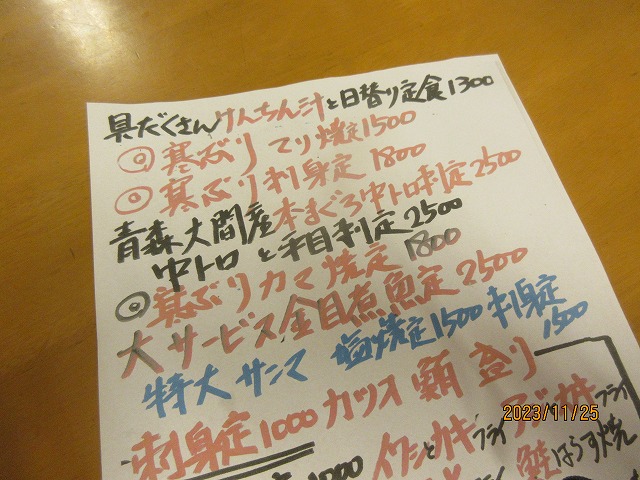 具だくさんけんちん汁と日替り定食1300
◎寒ぶりてり焼定1500
◎寒ぶり刺身定1800
青森大間産本まぐろ中トロ刺定2500
中トロと平目刺定2500
◎寒ぶりカマ焼定1800
大サービス金目煮魚定2500
特大サンマ塩焼定1500刺身定1500
刺身定1000カツオ
イワシとカキフライアジ
1000
鮭はらす焼
2023/11/25